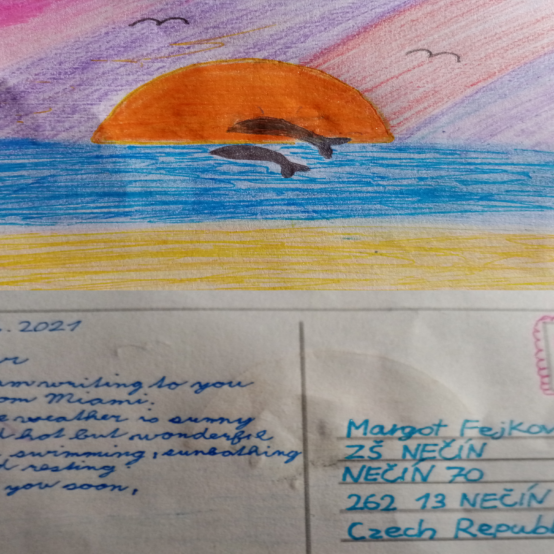 . 2021
am writing to you
om Miami.
e weather is sunny
d hot but wonderful
swimming, sunbathing
d resting
you soon,
Margot Fejkov
ZŠ NEČÍN
NEČÍN 70
262 13 NEČÍN
Czech Republ